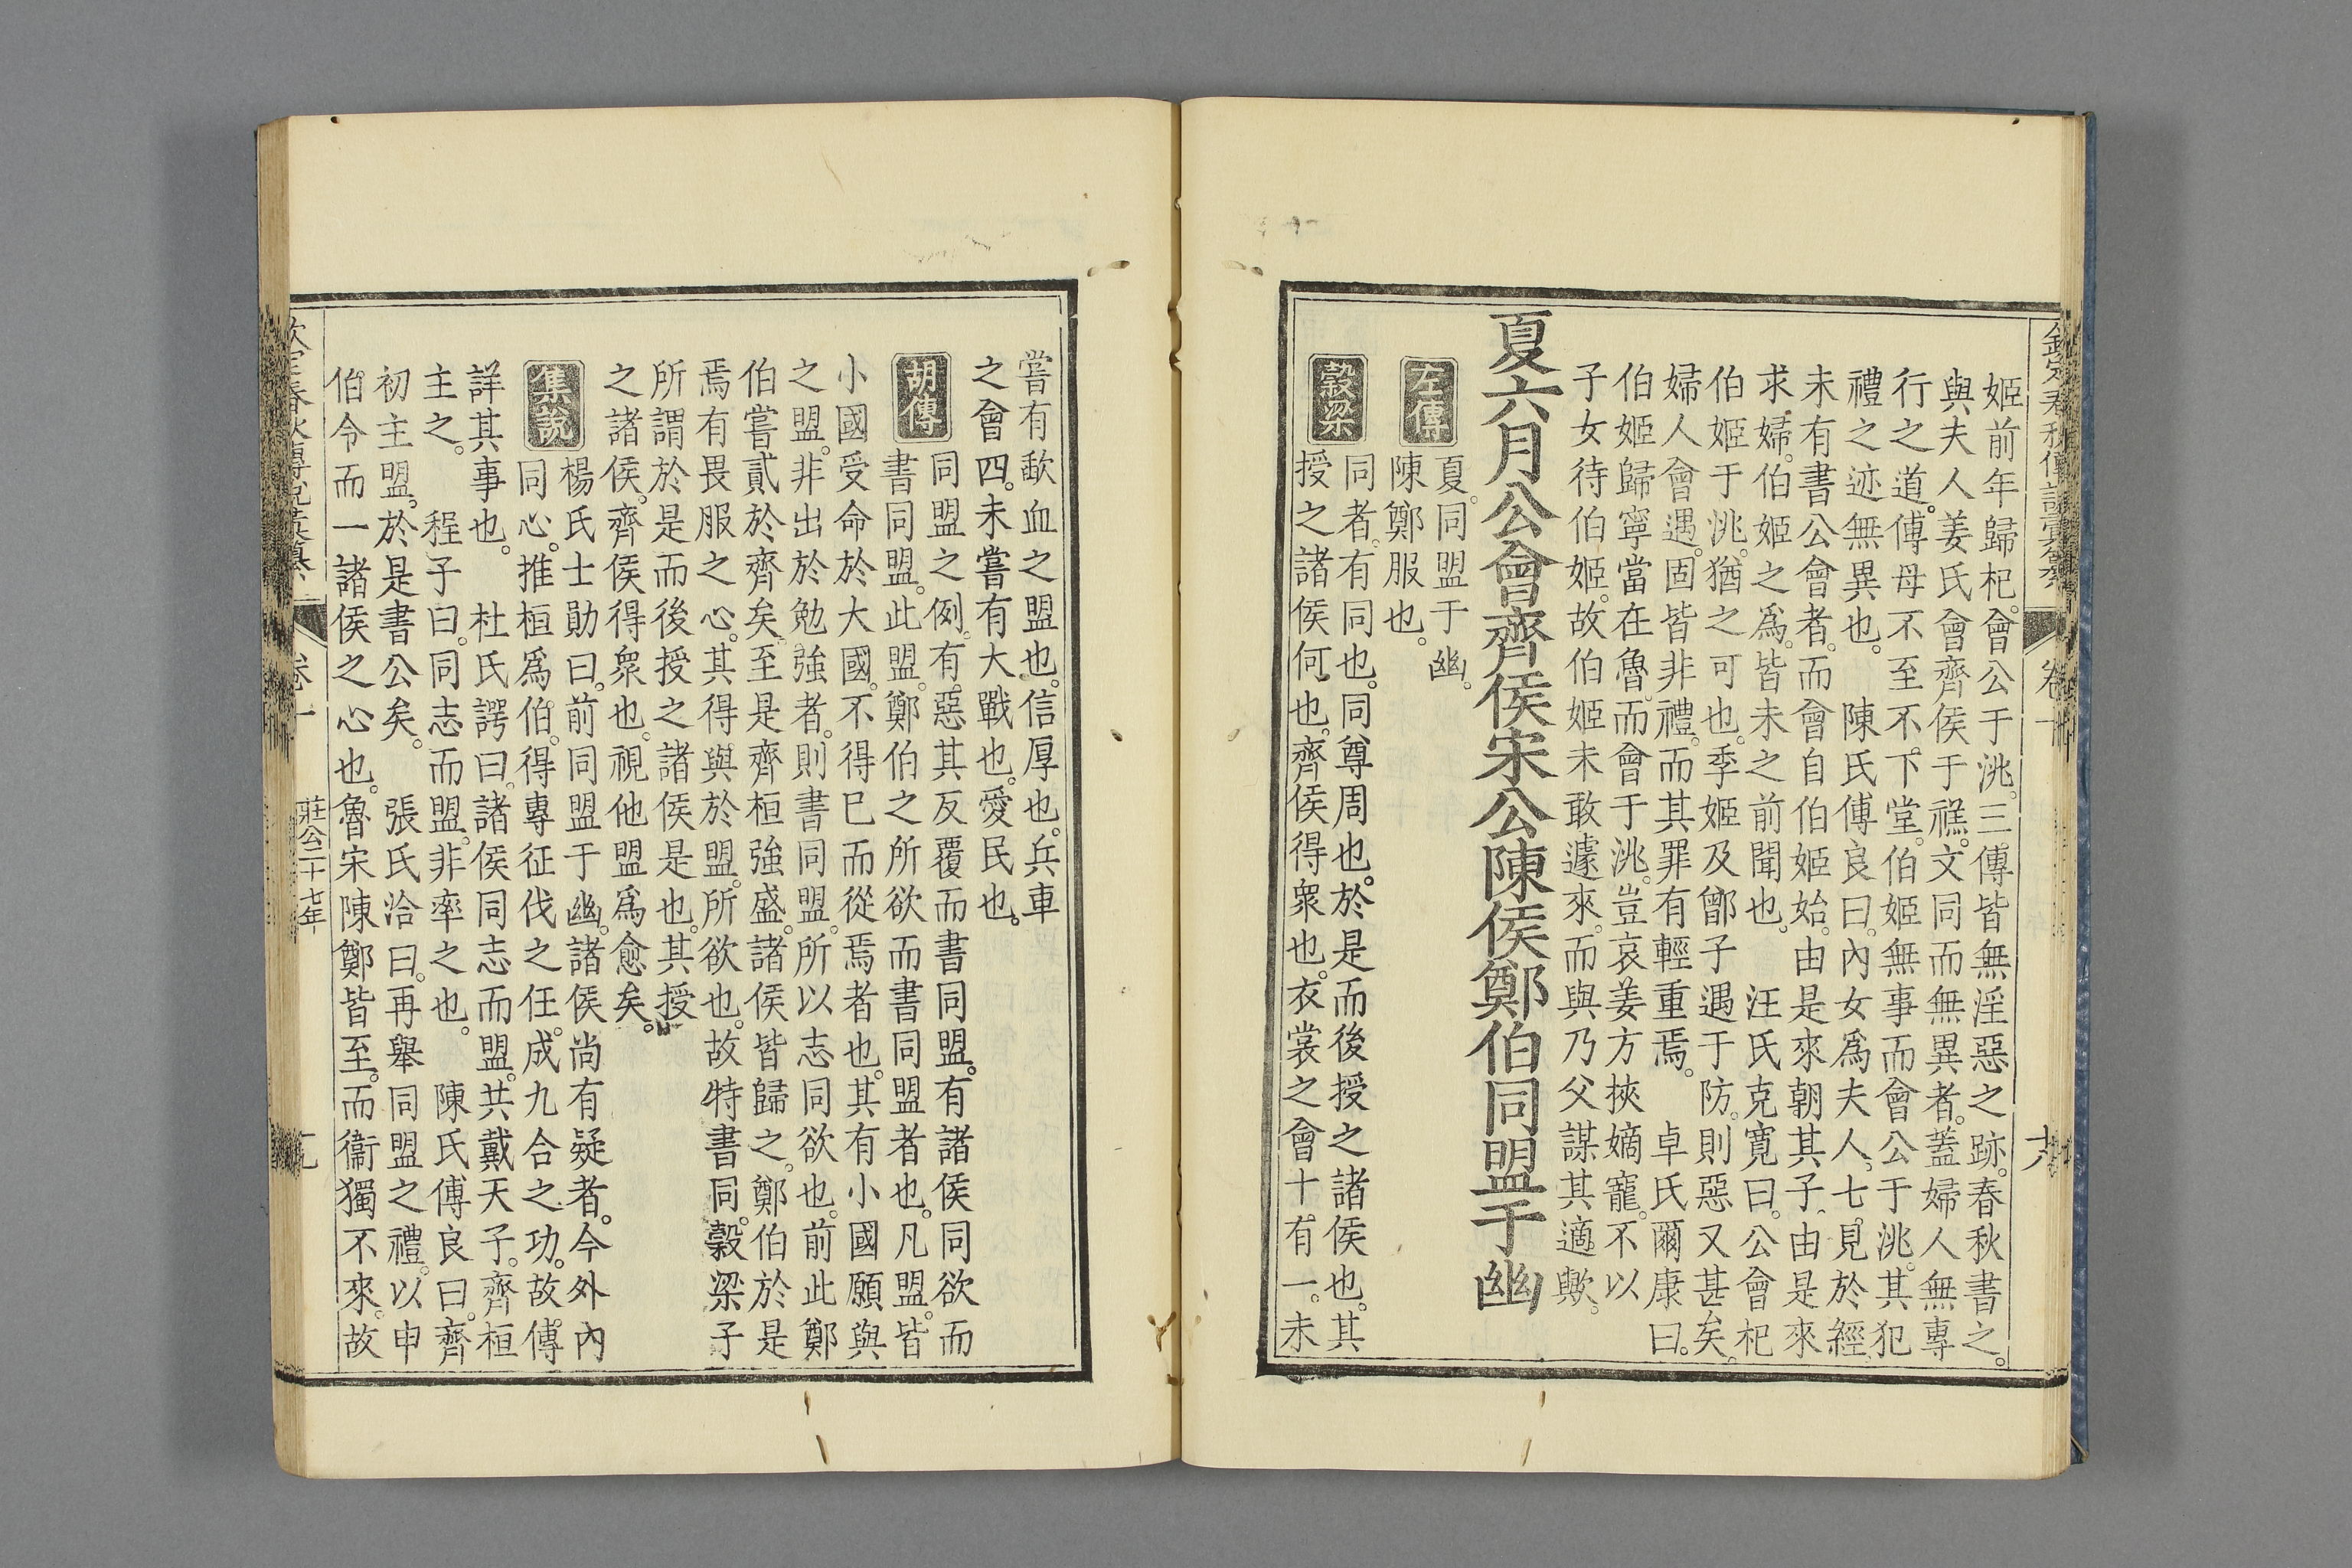 欽定春秋傳說彙纂 卷十
姬前年歸杞。會公于洮。三傳皆無淫惡之跡。春秋書之。
與夫人姜氏會齊侯于禚。文同而無異者。蓋婦人無專
行之道。傅母不至。不下堂。伯姬無事而會公于洮。其犯
禮之迹無異也。 陳氏傅良曰。內女爲夫人。七。見於經
未有書公會者。而會自伯姬始。由是來朝其子。由是來
求婦。伯姬之爲。皆未之前聞也。 汪氏克寬曰。公會杞
伯姬于洮。猶之可也。季姬及鄫子遇于防。則惡又甚矣。
婦人會遇。固皆非禮。而其罪有輕重焉。 卓氏爾康曰。
伯姬歸寧當在魯。而會于洮。豈哀姜方挾嫡寵。不以
子女待伯姬。故伯姬未敢遽來。而與乃父謀其適歟。
夏六月公會齊侯宋公陳侯鄭伯同盟于幽
左傳 夏。同盟于幽。
陳鄭服也。
穀梁 同者。有同也。同尊周也。於是而後授之諸侯也。其
授之諸侯何也。齊侯得衆也。衣裳之會十有一。未
嘗有歃血之盟也。信厚也。兵車
之會四。未嘗有大戰也。愛民也。
胡傳 同盟之例。有惡其反覆而書同盟。有諸侯同欲而
書同盟。此盟。鄭伯之所欲而書同盟者也。凡盟。皆
小國受命於大國。不得已而從焉者也。其有小國願與
之盟。非出於勉強者。則書同盟。所以志同欲也。前此鄭
伯嘗貳於齊矣。至是齊桓強盛。諸侯皆歸之。鄭伯於是
焉有畏服之心。其得與於盟。所欲也。故特書同。穀梁子
所謂於是而後授之諸侯是也。其授
之諸侯。齊侯得衆也。視他盟爲愈矣。
集說 楊氏士勛曰。前同盟于幽。諸侯尚有疑者。今外內
同心。推桓爲伯。得專征伐之任。成九合之功。故傳
詳其事也。 杜氏諤曰。諸侯同志而盟。共戴天子。齊桓
主之。 程子曰。同志而盟。非率之也。 陳氏傅良曰。齊
初主盟。於是書公矣。 張氏洽曰。再舉同盟之禮。以申
伯令而一諸侯之心也。魯宋陳鄭皆至。而衞獨不來。故
欽定春秋傳說彙纂 卷十 莊公二十七年